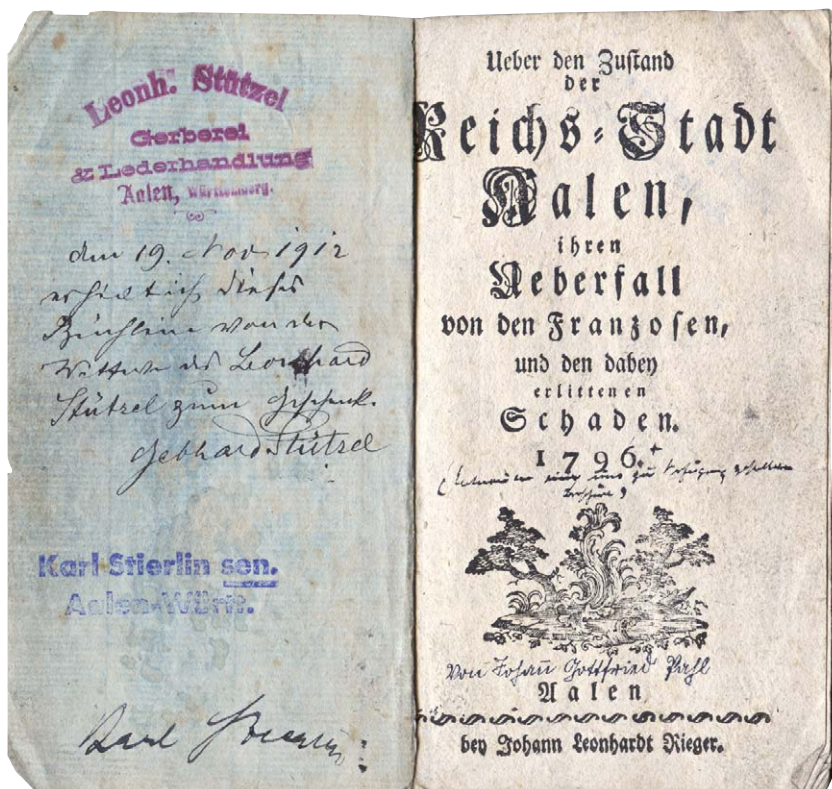 Leonh. Stützel
Gerberei
& Lederhandlung
Aalen, Württemberg.
den 19. Nov 1912
erhielt ich dieses
Büchlein von der
Wittwe des Leonhard
Stützel zum Geschenk.
Gebhard Stützel
Karl Stierlin sen.
Aalen-Württ.
Karl
Ueber den Zustand
der
Reichs-Stadt
Aalen,
ihren
Ueberfall
von den Franzosen,
und den dabey
erlittenen
Schaden.
1796.
von Johann Gottfried Pahl
Aalen
bey Johann Leonhardt Rieger.